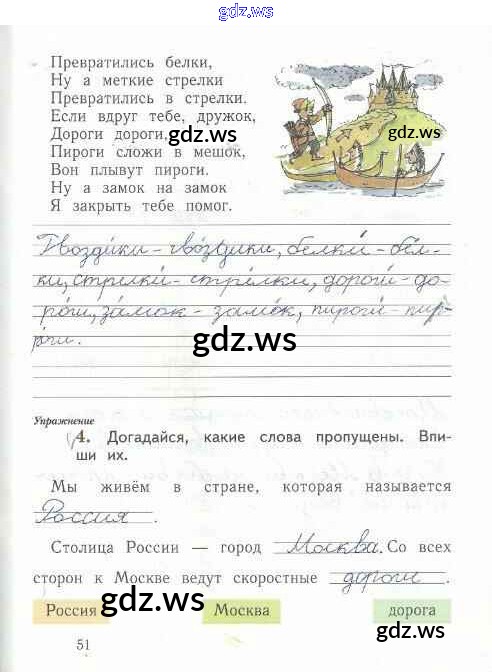 gdz.ws
Превратились белки,
Ну а меткие стрелки
Превратились в стрелки.
Если вдруг тебе, дружок,
Дороги дороги,
gdz.ws
gdz.ws
Пироги сложи в мешок,
Вон плывут пироги.
Ну а замок на замок
Я закрыть тебе помог.
Гвозди́ки - гво́здики, белки́ - бе́л-
ки, стрелки́ - стре́лки, доро́ги - до-
роги, за́мок - замо́к, пироги́ - пи-
ро́ги.
gdz.ws
Упражнение
4. Догадайся, какие слова пропущены. Впи-
ши их.
Мы живём в стране, которая называется
Россия.
Столица России — город Москва. Со всех
сторон к Москве ведут скоростные дороги.
gdz.ws
gdz.ws
Россия
Москва
дорога
51
gdz.ws